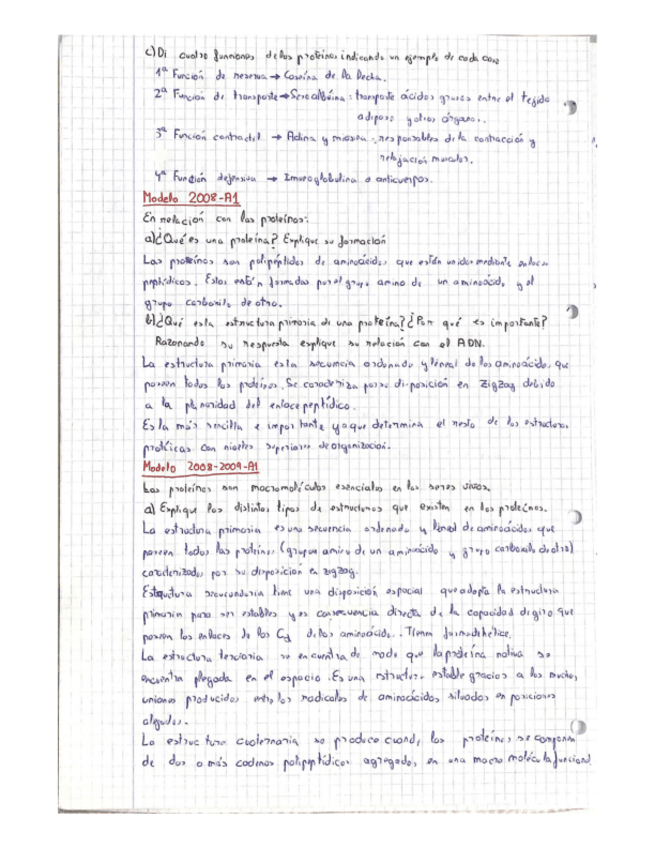 c) Di cuatro funciones de las proteínas indicando un ejemplo de cada caso
1ª Función de reserva → Caseína de la leche.
2ª Función de transporte → Seroalbúmina: transporte ácidos grasos entre el tejido
adiposo y otros órganos.
3ª Función contractil → Actina y miosina: responsables de la contracción y
relajación muscular.
4ª Función defensiva → Inmunoglobulina o anticuerpos.
Modelo 2008-A1
En relación con las proteínas:
a) ¿Qué es una proteína? Explique su formación
Las proteínas son polipéptidos de aminoácidos, que están unidos mediante enlaces
peptídicos. Estos están formados por el grupo amino de un aminoácido y el
grupo carboxilo de otro.
b) ¿Qué es la estructura primaria de una proteína? ¿Por qué es importante?
Razonando su respuesta explique su relación con el ADN.
La estructura primaria es la secuencia ordenada y lineal de los aminoácidos que
poseen todas las proteínas. Se caracteriza por su disposición en zigzag debido
a la planaridad del enlace peptídico.
Es la más sencilla e importante ya que determina el resto de las estructuras
protéicas con niveles superiores de organización.
Modelo 2008-2009-A1
Las proteínas son macromoléculas esenciales en los seres vivos.
a) Explique los distintos tipos de estructuras que existen en las proteínas.
La estructura primaria es una secuencia ordenada y lineal de aminoácidos que
poseen todas las proteínas (grupo amino de un aminoácido y grupo carboxilo de otro)
caracterizados por su disposición en zigzag.
secundaria tiene una disposición espacial que adopta la estructura
primaria para ser estables y es consecuencia directa de la capacidad de giro que
poseen los enlaces de los Cα de los aminoácidos. Tienen forma de hélice.
La estructura terciaria se encuentra de modo que la proteína nativa se
encuentra plegada en el espacio. Es una estructura estable gracias a las muchas
uniones producidas entre los radicales de aminoácidos situados en posiciones
alejadas.
La estructura cuaternaria se produce cuando las proteínas se componen
de dos o más cadenas polipeptídicas agregadas en una macromolécula funcional